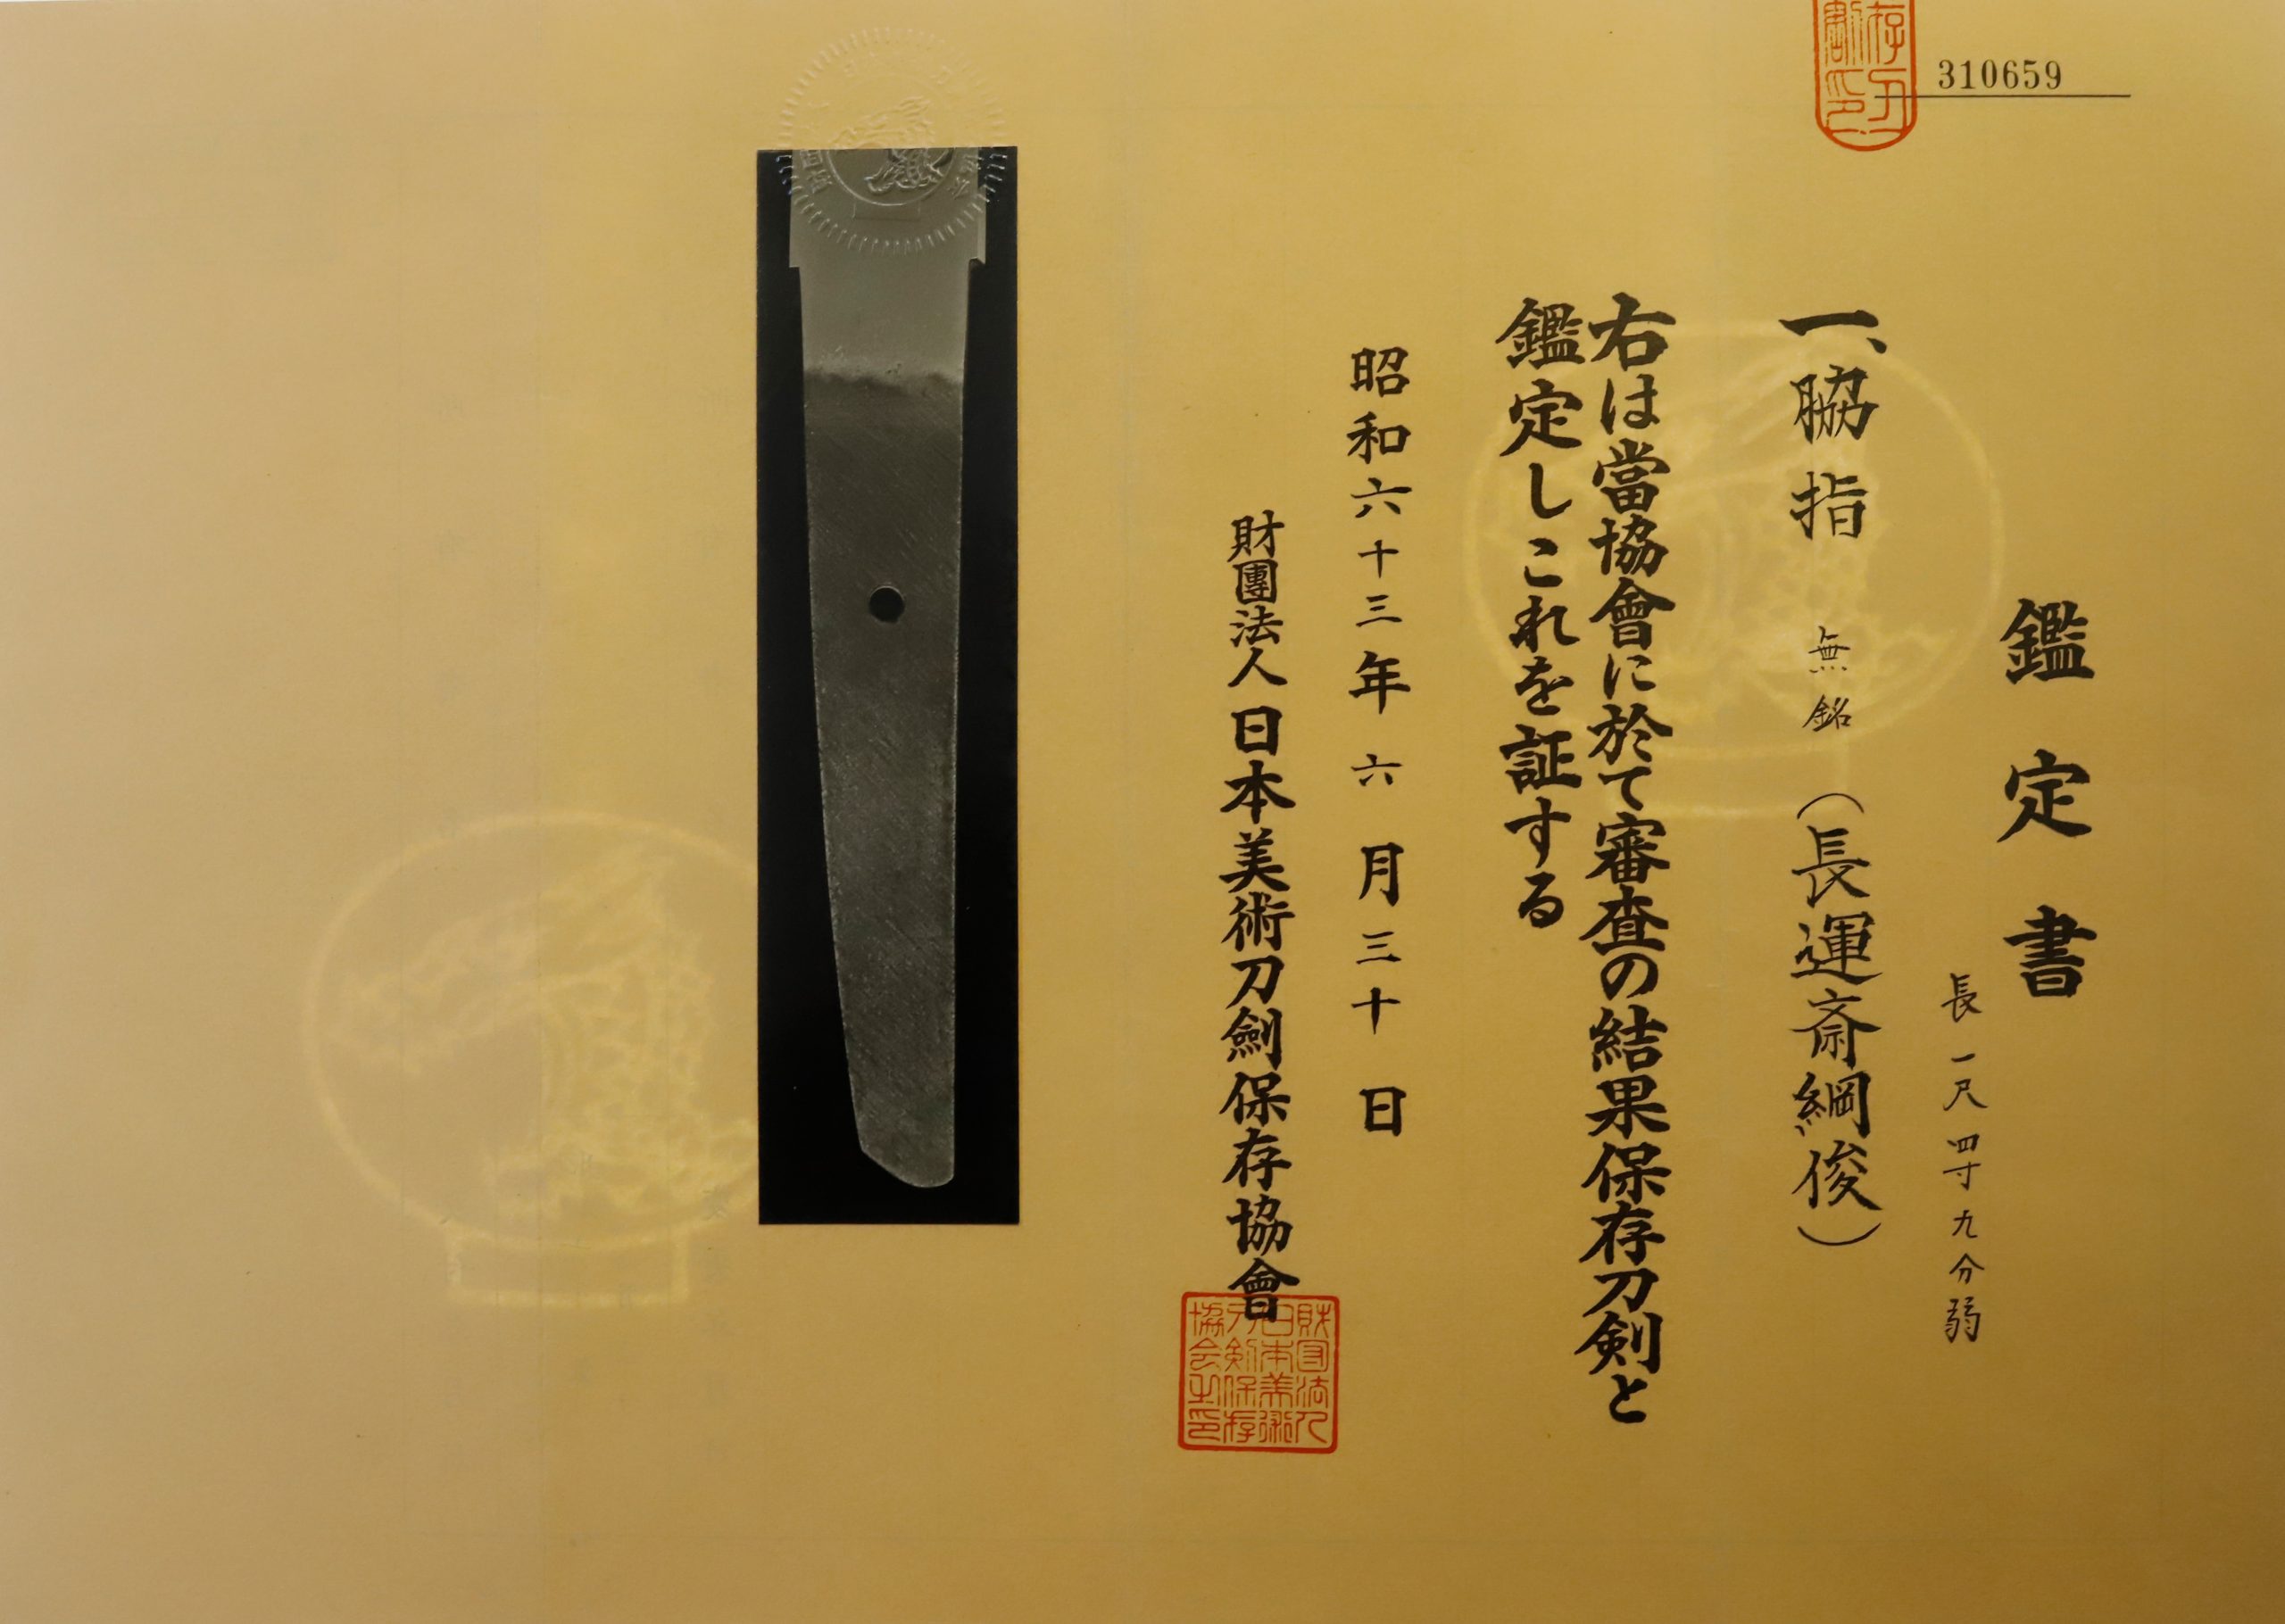 310659
鑑定書
長一尺四寸九分弱
一、脇指 無銘 (長運斎綱俊)
右は當協會に於て審査の結果保存刀剣と
鑑定しこれを証する
昭和六十三年六月三十日
財團法人日本美術刀劍保存協會
財団法人
日本美術
刀剣保存
協会之印